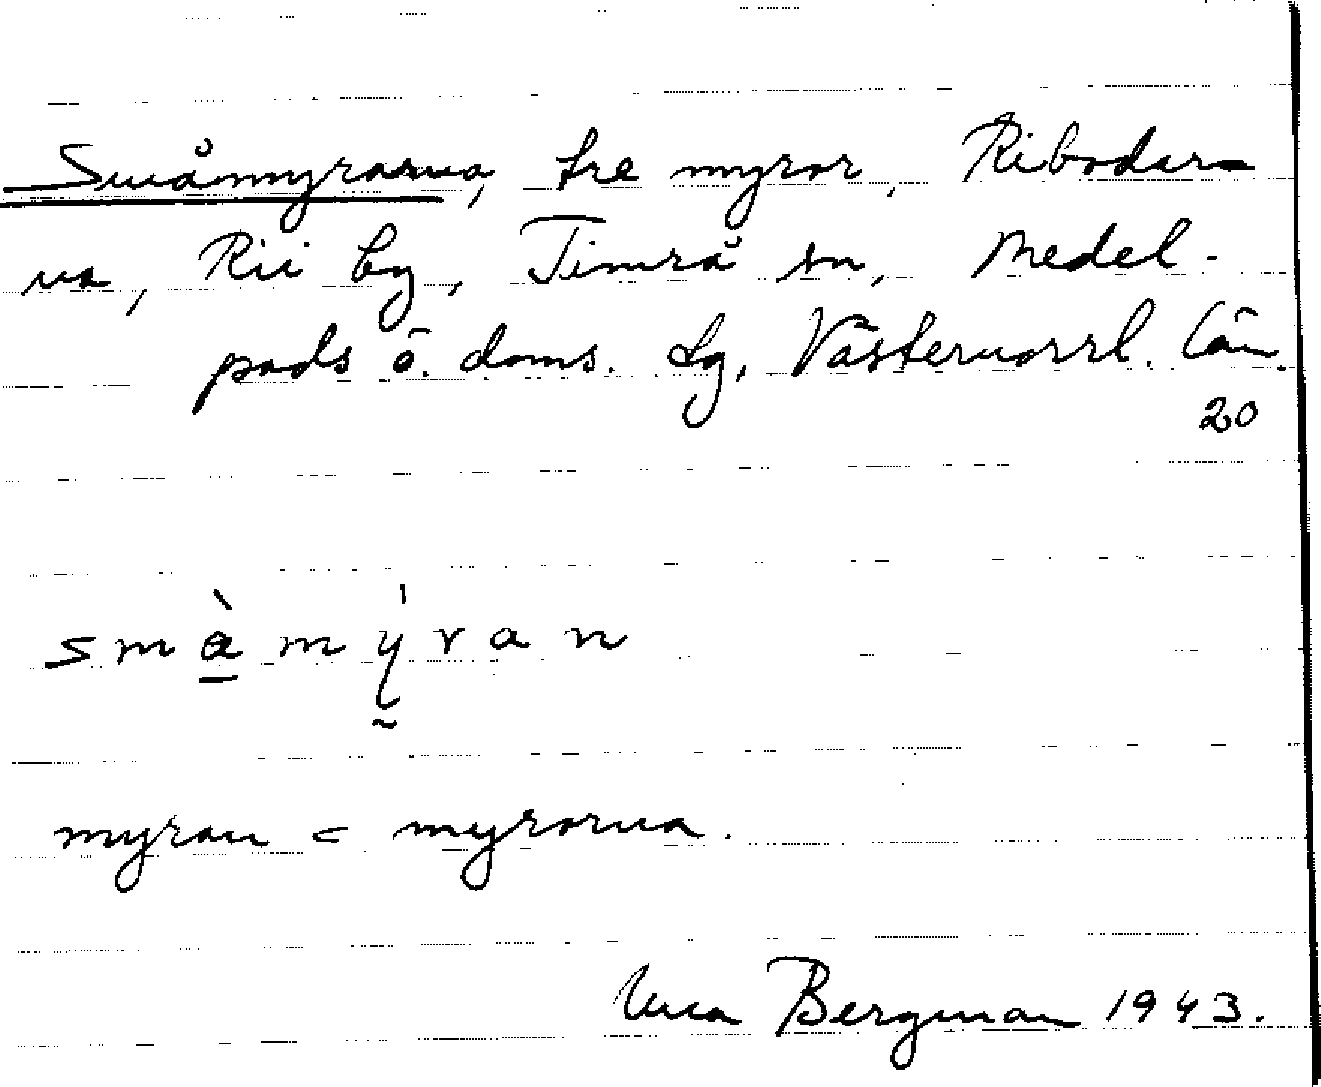 Småmyrarna, tre myror, Ribodar-
na, Rii by, Timrå sn, Medel-
pads ö. doms. tg, Västernorrl. län.
20
smàmýran
myran = myrorna.
Bergman 1943.